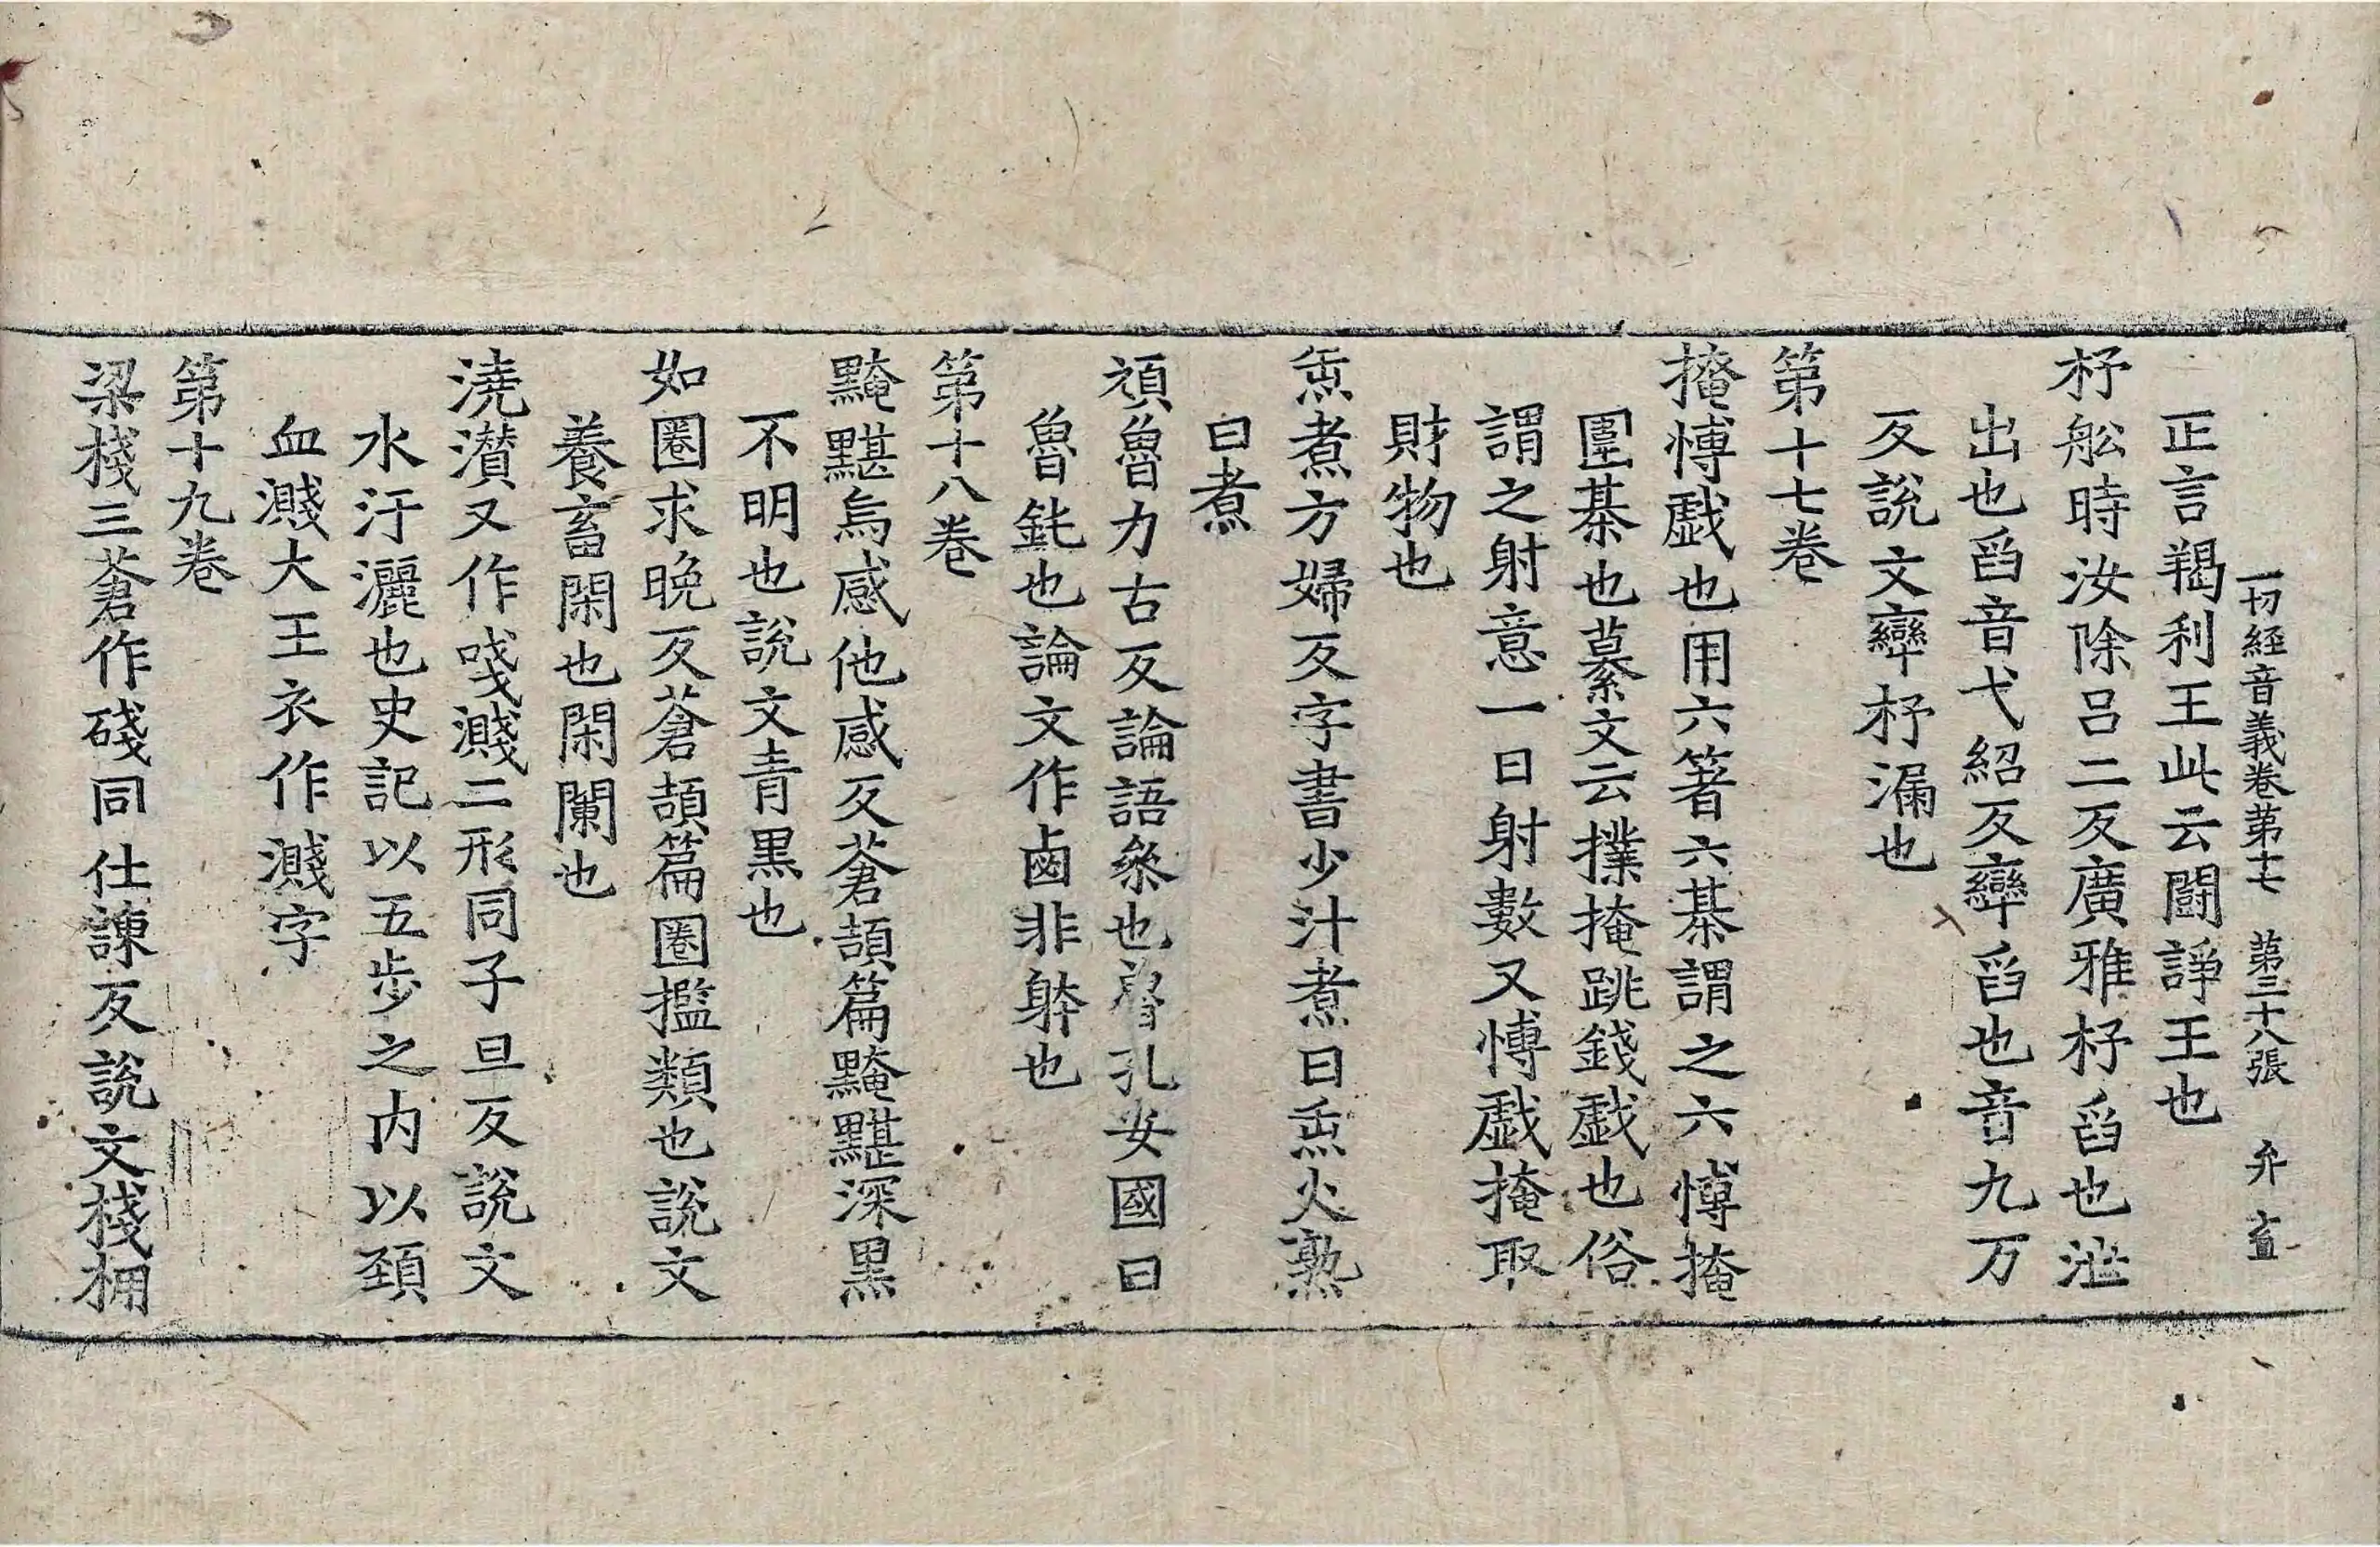 一切經音義卷第十七 第三十八張 弁
正言羯利王此云鬪諍王也
杼舩時汝除呂二反廣雅杼舀也泄
出也舀音弋紹反𤼙舀也音九万
反說文𤼙杼漏也
第十七卷
掩愽戱也用六箸六棊謂之六愽掩
圍棊也纂文云撲掩跳錢戱也俗
謂之射意一曰射數又愽戱掩取
財物也
缹煮方婦反字書少汁煮曰缹火熟
曰煮
頑魯力古反論語叅也魯孔安國曰
魯鈍也論文作鹵非躰也
第十八卷
黤黮烏感他感反蒼頡篇黤黮深黑
不明也說文青黑也
如圈求晚反蒼頡篇圈檻類也說文
養畜閑也閑闌也
澆灒又作㳻濺二形同子旦反說文
水汙灑也史記以五步之内以頚
血濺大王衣作濺字
第十九卷
梁棧三蒼作碊同仕諫反說文棧棚